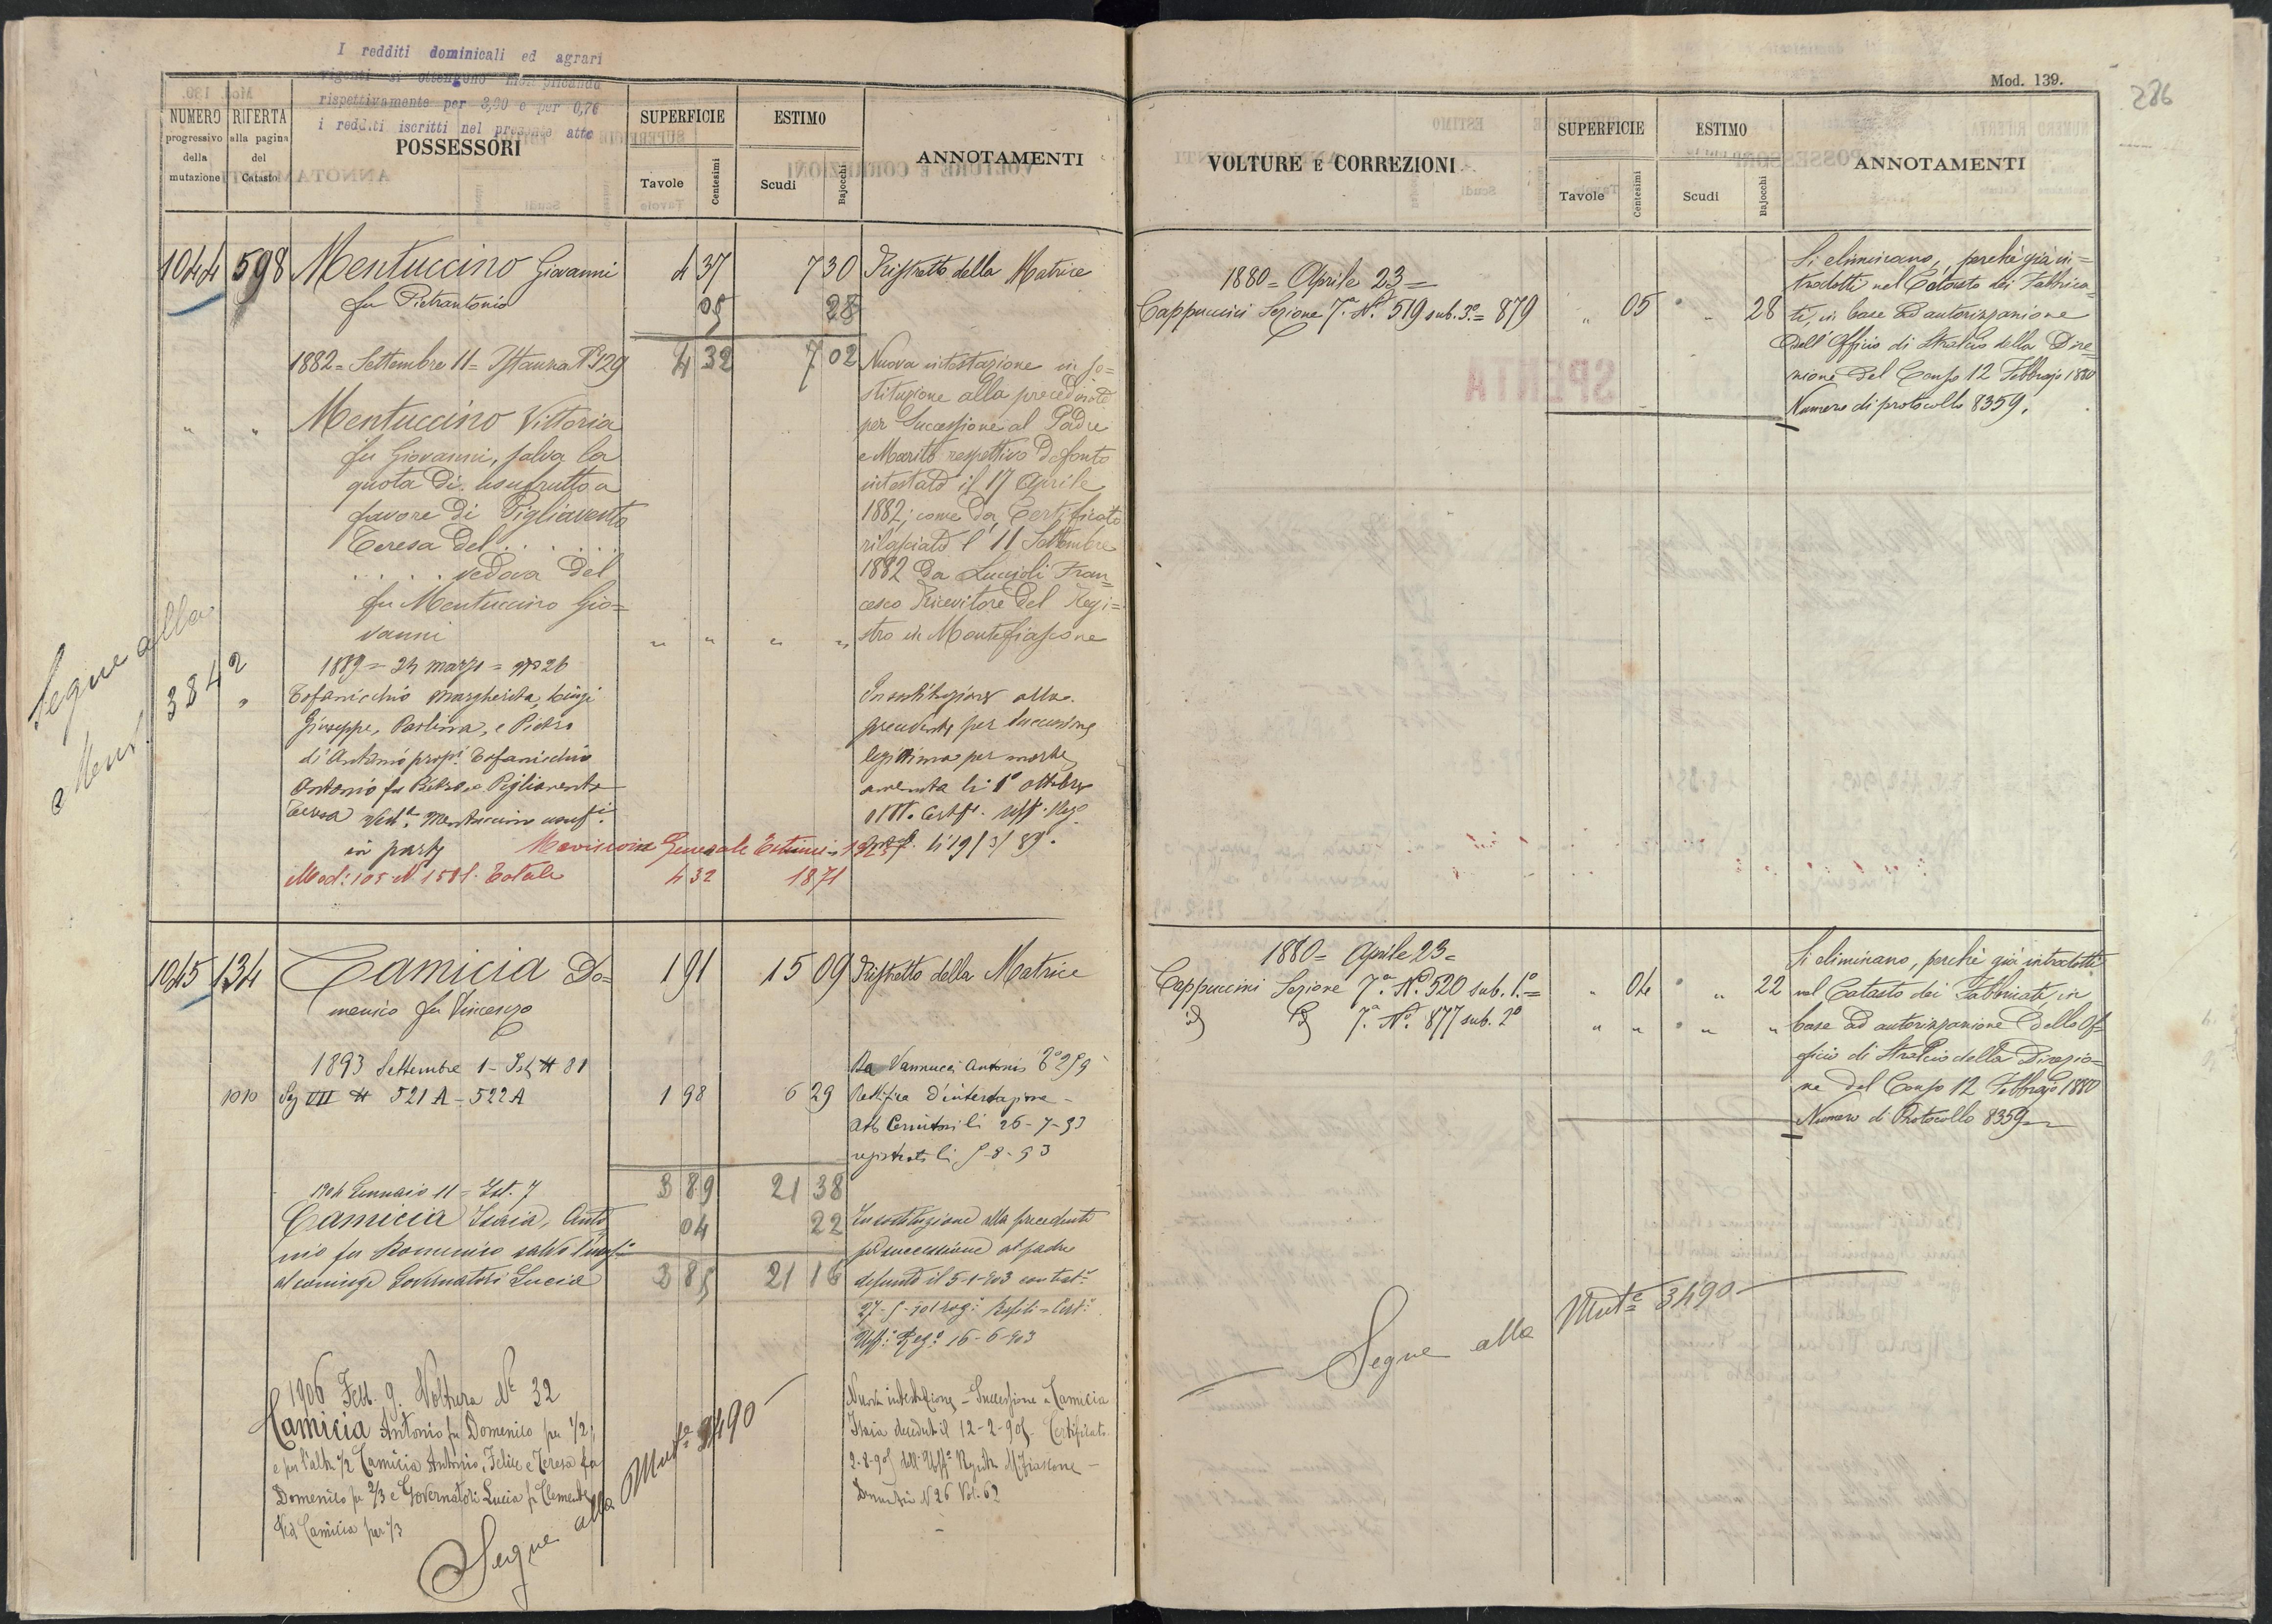 I redditi dominicali ed agrari
vigenti si ottengono moltiplicando
rispettivamente per 3,90 e per 0,76
i redditi iscritti nel presente atto
NUMERO progressivo della mutazione
RIFERTA alla pagina del Catasto
POSSESSORI
SUPERFICIE
Tavole
Centesimi
ESTIMO
Scudi
Bajocchi
ANNOTAMENTI
1044 598 Mentuccino Giovanni 4 37 7 30 Ristretto della Matrice
fu Pietrantonio 05 28
1882 = Settembre 11 = Istanza N° 129 4 32 7 02 Nuova intestazione in so=
stituzione alla precedente
" " Mentuccino Vittoria per Successione al Padre
fu Giovanni, salva la e Marito respettivo Defonto
quota di usufrutto a intestato il 17 Aprile
favore di Pigliavento 1882, come da Certificato
Teresa del . . . . . . rilasciato l' 11 Settembre
. . . . vedova del 1882 da Luccioli Fran=
fu Mentuccino Gio= cesco Ricevitore del Regi=
vanni " " " " stro in Montefiascone
1889 = 24 marzo = N° 26
Segue alla
3842
Tofanicchio Margherita, Luigi In sostituzione alla
Giuseppe, Paolina, e Pietro precedente per successione
di Antonio prop.i Tofanicchio legittima per morte
Antonio fu Pietro e Pigliavento avvenuta li 1° ottobre
Teresa Ved.a Mentuccino usuf.i
in parte li 19/3/89.
Revisione Generale Estimi
Mod: 105 N 1581. Totale 4 32 18 71
1045 134 Camicia Do= 1 91 15 09 Ristretto della Matrice
menico fu Vincenzo
1893 Settembre 1 - Ist N 81 Da Vannucci Antonio
1010 Sez VII N 521 A - 522 A 1 98 6 29 Rettifica d'intestazione -
26-7-93
registrato li 5-8-93
3 89 21 38
1904 Gennaio 11 = Ist. 7
Camicia Isaia, Anto 04 22 In sostituzione alla precedente
nio fu Domenico salvo l'usuf.o per successione al padre
al coniuge Governatori Lucia 3 85 21 16 defunto il 5-1-903
Uff.o Reg.o 16-6-903
1906 Febb. 9. Voltura N° 32
Camicia Antonio fu Domenico per 1/2; Nuova intestazione - Successione a Camicia
e per l'altra 1/2 Camicia Antonio, Felice e Teresa fu Isaia deceduto il 12-2-905 Certificato
Domenico per 2/3 e Governatori Lucia fu Clemente 2-8-905 dell'Uff.o Registro M.Fiascone -
Ved Camicia per 1/3 Denunzia N 26 Vol. 62
Segue alla Mut.e 3490
Mod. 139.
286
VOLTURE E CORREZIONI
SUPERFICIE
Tavole
Centesimi
ESTIMO
Scudi
Bajocchi
ANNOTAMENTI
1880 = Aprile 23 =
Cappuccini Sezione 7.a N.° 519 sub. 3.° = 879 " 05 " 28
Si eliminano, perchè già in=
trodotti nel Catasto dei Fabbrica=
ti, in base ad autorizzazione
dell'Officio di Stralcio della Dire=
zione del Censo 12 Febbrajo 1880
Numero di protocollo 8359.
SPENTA
1880 = Aprile 23 =
Cappuccini Sezione 7.a N.° 520 sub. 1.° = " 04 " 22
id id 7.a N.° 877 sub. 2° " " " "
Si eliminano, perchè già introdotti
nel Catasto dei Fabbricati, in
base ad autorizzazione dello Of=
ficio di Stralcio della Direzio=
ne del Censo 12 Febbrajo 1880
Numero di Protocollo 8359
Segue alla Mut.e 3490